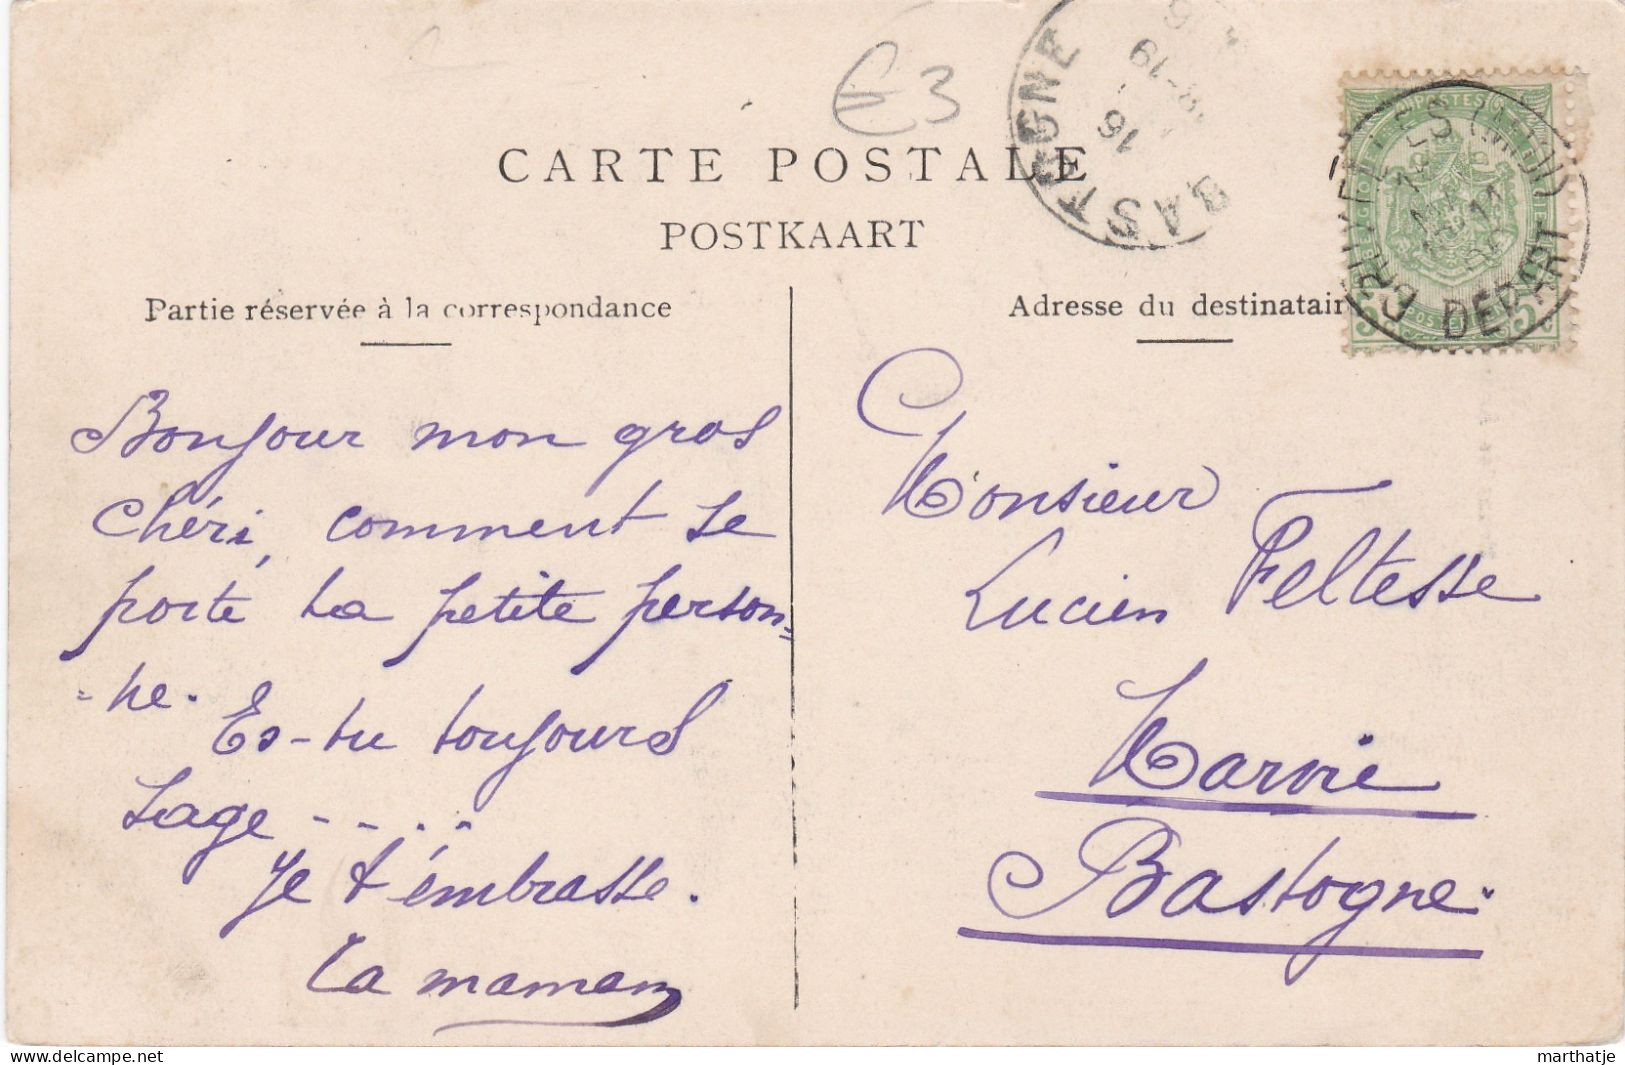 €3
CARTE POSTALE
POSTKAART
BASTOGNE
16
8-19
BRUXELLES (MIDI)
DEPART
POSTES
5c
Partie réservée à la correspondance
Bonjour mon gros
chéri, comment se
porte ta petite person=
=ne. Es-tu toujours
sage - - . .
Je t'embrasse.
Ta maman
Adresse du destinatair
Monsieur
Lucien Feltesse
Marvie
Bastogne.
delcampe.net
marthatje